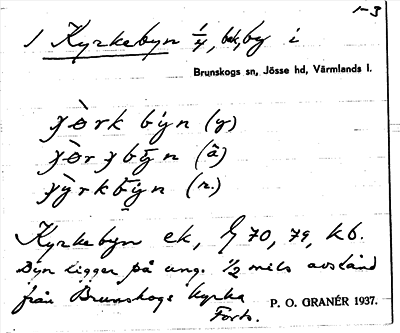 1-3
1 Kyrkebyn 1/4, bak, by i
Brunskogs sn, Jösse hd, Värmlands l.
(y)
(ä)
(n.)
Kyrkebyn ek, G 70, 79, kb.
Byn ligger på ung. 1/2 mils avstånd
från Brunskogs kyrka
P. O. GRANÉR 1937.
Forts.